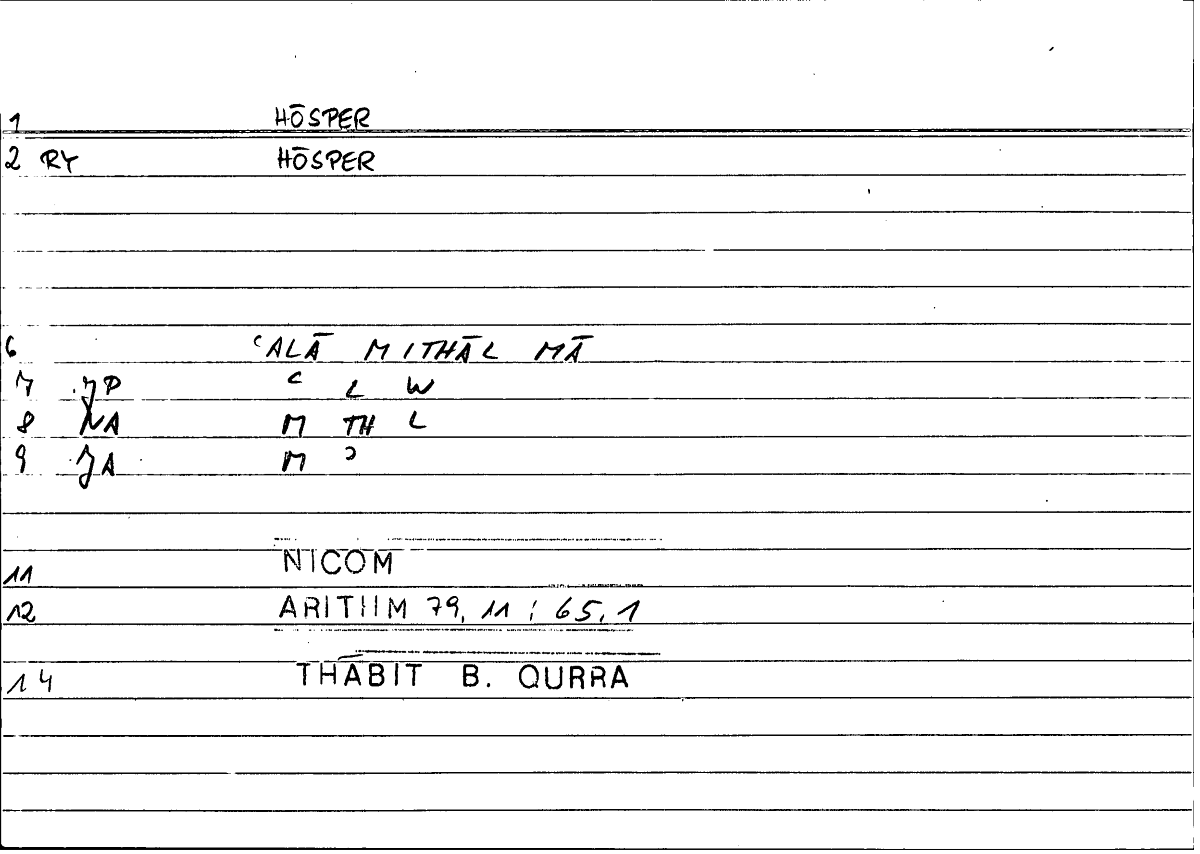 1 HŌSPER
2 RY HŌSPER
6 ʿALĀ MITHĀL MĀ
7 JP ʿ L W
8 NA M TH L
9 JA M ʾ
11 NICOM
12 ARITHM 79, 11 ; 65, 1
14 THĀBIT B. QURRA